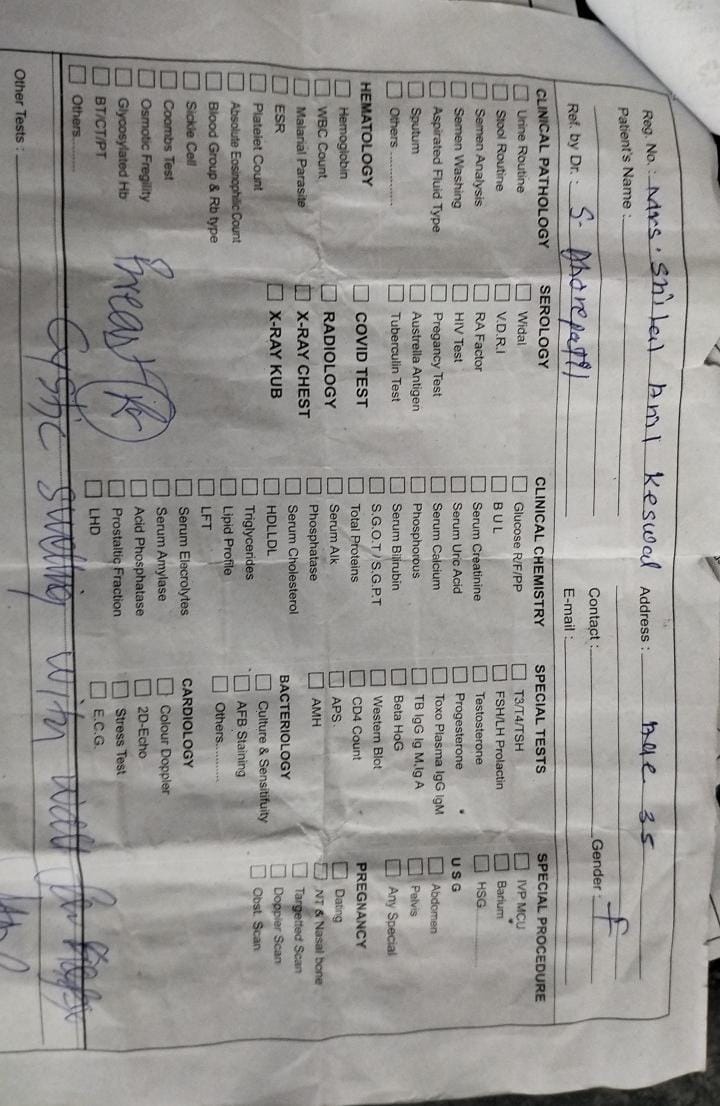 Reg. No. : Mrs. Shital Anil Keswal Address : Age 35
Patient's Name :
Contact : Gender : F
Ref. by Dr. : S. E-mail :
CLINICAL PATHOLOGY
Urine Routine
Stool Routine
Semen Analysis
Semen Washing
Aspirated Fluid Type
Sputum
Others..............
HEMATOLOGY
Hemoglobin
WBC Count
Malarial Parasite
ESR
Platelet Count
Absolute Eosinophilic Count
Blood Group & Rb type
Sickle Cell
Coombs Test
Osmotic Fregility
Glycosylated Hb
BT/CT/PT
Others..........
SEROLOGY
Widal
V.D.R.I
RA Factor
HIV Test
Pregancy Test
Austrella Antigen
Tuberculin Test
COVID TEST
RADIOLOGY
X-RAY CHEST
X-RAY KUB
Breast (R)
CLINICAL CHEMISTRY
Glucose R/F/PP
B U L
Serum Creatinine
Serum Uric Acid
Serum Calcium
Phosphorous
Serum Bilirubin
S.G.O.T / S.G.P.T
Total Proteins
Serum Alk
Phosphatase
Serum Cholesterol
HDLLDL
Triglycerides
Lipid Profile
LFT
Serum Elecrolytes
Serum Amylase
Acid Phosphatase
Prostaltic Fraction
LHD
SPECIAL TESTS
T3/T4/TSH
FSH/LH Prolactin
Testosterone
Progesterone
Toxo Plasma IgG IgM
TB IgG Ig M,Ig A
Beta HoG
Western Blot
CD4 Count
APS.
AMH
BACTERIOLOGY
Culture & Sensitifuity
AFB Staining
Others...........
CARDIOLOGY
Colour Doppler
2D-Echo
Stress Test
E.C.G.
SPECIAL PROCEDURE
IVP MCU
Barium
HSG
U S G
Abdomen
Pelvis
Any Special
PREGNANCY
Dating
NT & Nasal bone
Targetted Scan
Doppler Scan
Obst. Scan
Cystic swelling with wall
Other Tests :